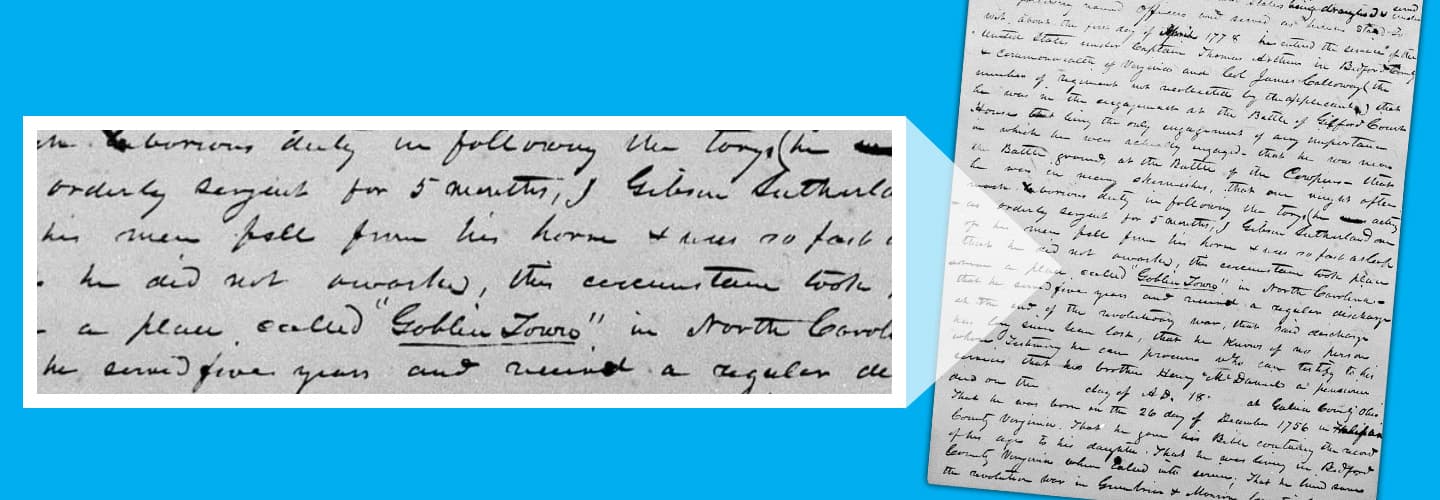 laborious duty in following the torys (he
orderly sergent for 5 months, J Gibson Sutherla
his men fell from his horse & was so fast a
he did not awake, this circumstance took
- a place called "Goblin Towns" in North Carol
he served five years and received a regular de
States being draughted & served under
following named Officers and served as herein stated
with, about the first day of April 1778 he entered the service of the
United States under Captain Thomas in Bedford County
& Commonwealth of Virginia and Col James Calloway (the
number of regiment not recollected by the applicant) that
he was in the engagement at the Battle of Gilford Court
House that being the only engagement of any importance
in which he was actually engaged - that he was near
the Battle ground at the Battle of the Cowpens - that
he was in many skirmishes, that one night after
much laborious duty in following the torys (he acting
as orderly sergent for 5 months,) Gibson Sutherland one
of his men fell from his horse & was so fast asleep
that he did not awake, this circumstance took place
a place called "Goblin Towns" in North Carolina -
that he served five years and received a regular discharge
at the end of the revolutionary war, that said discharge
has long since been lost, that he knows of no person
whose Testimony he can procure who can testify to his
services that his brother Henry McDaniel a pensioner
and on the day of A.D. 18 at County Ohio
That he was born on the 26 day of December 1756 in Halifax
County Virginia. That he gave his Bible containing the record
of his age to his daughter. That he was living in Bedford
County Virginia when called into service; That he lived since
the revolution war in Greenbrier & Monroe